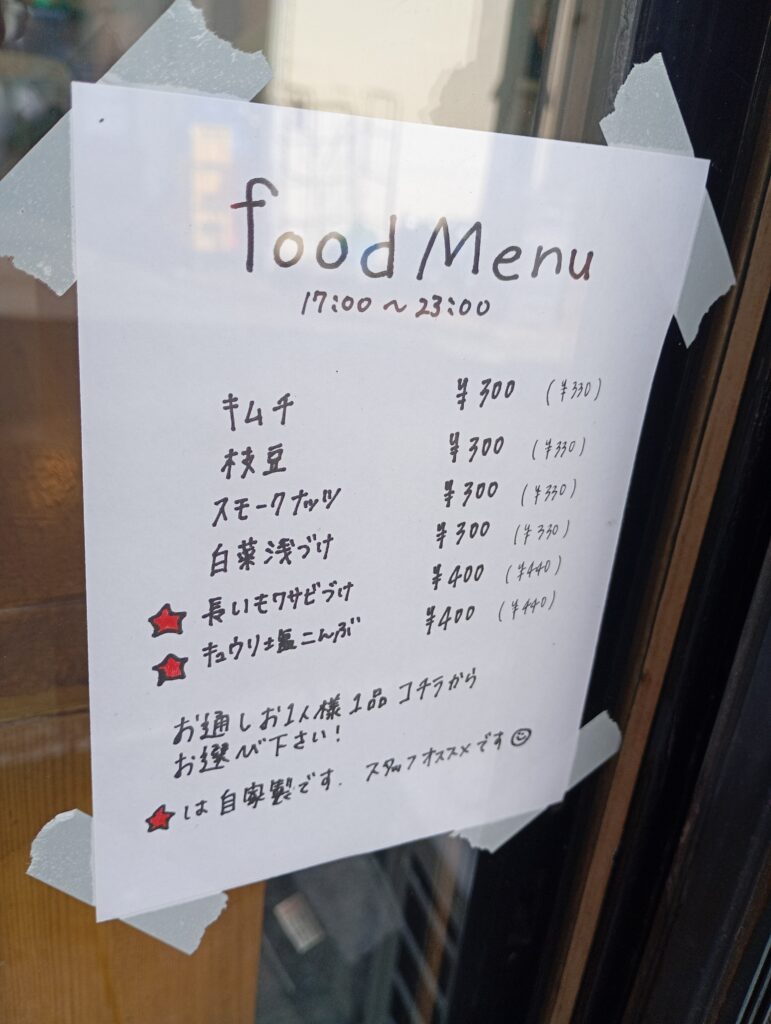 food Menu
17:00 ~ 23:00
キムチ ¥300 (¥330)
枝豆 ¥300 (¥330)
スモークナッツ ¥300 (¥330)
白菜浅づけ ¥300 (¥330)
★ 長いもワサビづけ ¥400 (¥440)
★ キュウリ塩こんぶ ¥400 (¥440)
お通しお1人様1品コチラから
お選び下さい!
★は自家製です. スタッフオススメです☺